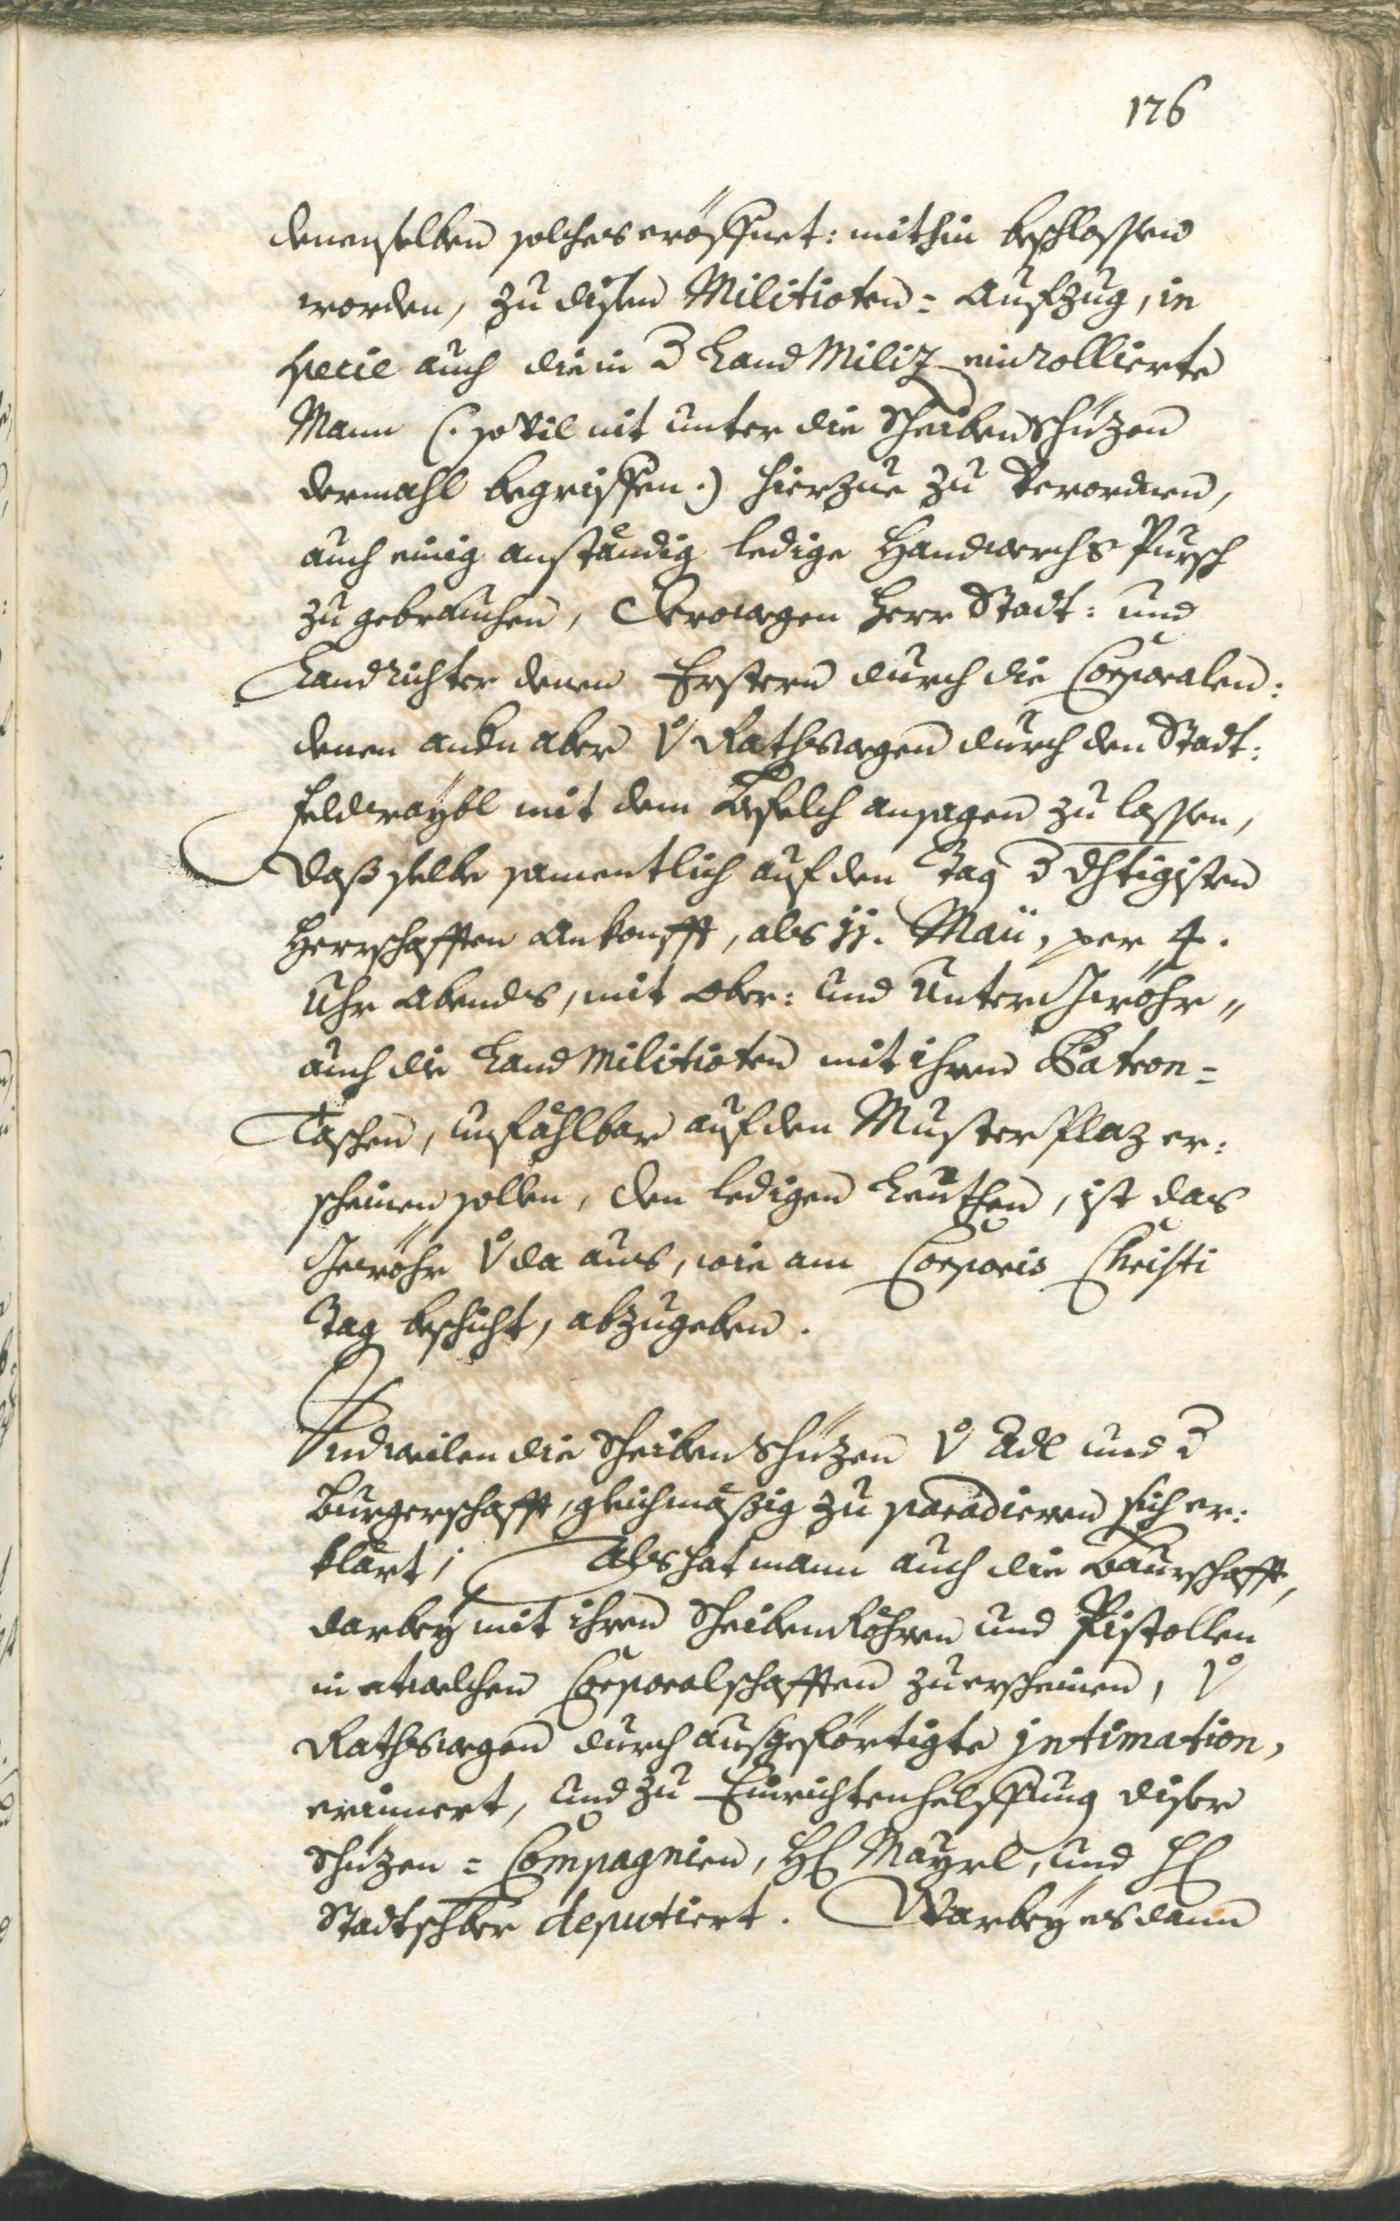 176
denenselben solches eröffnet: mithin beschlossen
worden, zu disen Militioten= Aufzug, in
specie auch die in d Land Miliz einrollierte
Mann (: sovil nit unter die Scheibenschüzen
dermahl begriffen :) hierzue zu verordnen,
auch einig anständig ledige Handwerchs Pursch
zu gebrauchen, derowegen Herr Stadt: und
Landrichter denen Erstern durch die Corporalen:
denen andn aber v Rathswegen durch den Stadt:
feldwaybl mit dem Befelch ansagen zu lassen,
daß selbe samentlich auf den Tag d gdhtigisten
Herrschafften Ankonfft, als 11. Maii, per 4.
Uhr Abends, mit Ober: und Unter Gewöhr,,
auch die Land Militioten mit ihren Patron=
Taschen, unfählbar auf den Muster Plaz er:
scheinen sollen, den ledigen Leuthen, ist das
Gewöhr v da aus, wie am Corporis Christi
Tag beschicht, abzugeben.
Undweilen die Scheibenschüzen v Adl und d
Burgerschafft, gleichmäßig zu paradieren sich er:
klärt; Als hat mann auch die Baurschafft,
darbey mit ihren Scheibenröhren und Pistollen
in etwelchen Corporalschafften zuerscheinen, v
Rathswegen durch ausgeförtigte intimation,
erinnert, und zu Einrichtenhelffung diser
Schüzen= Compagnien, H Mayrl, und H
Stadtschber deputiert. Warbey es dann